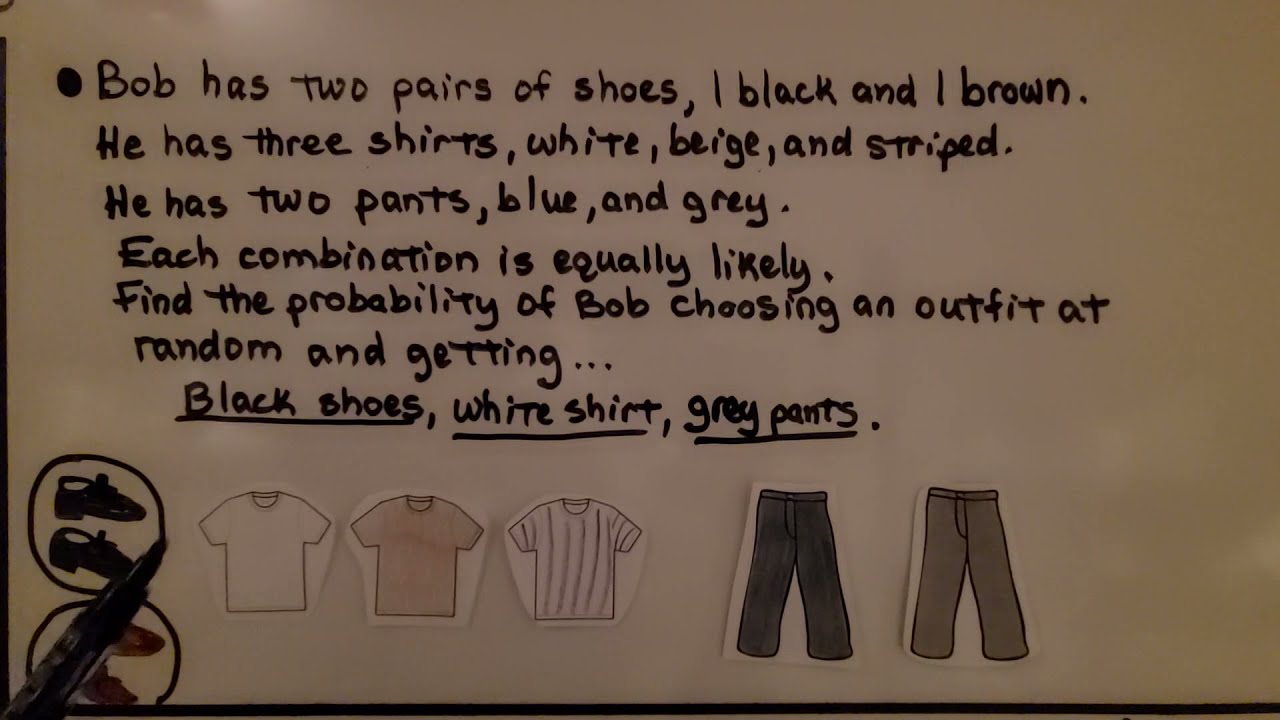 • Bob has two pairs of shoes, 1 black and 1 brown.
He has three shirts, white, beige, and striped.
He has two pants, blue, and grey.
Each combination is equally likely.
Find the probability of Bob choosing an outfit at
random and getting...
Black shoes, white shirt, grey pants.